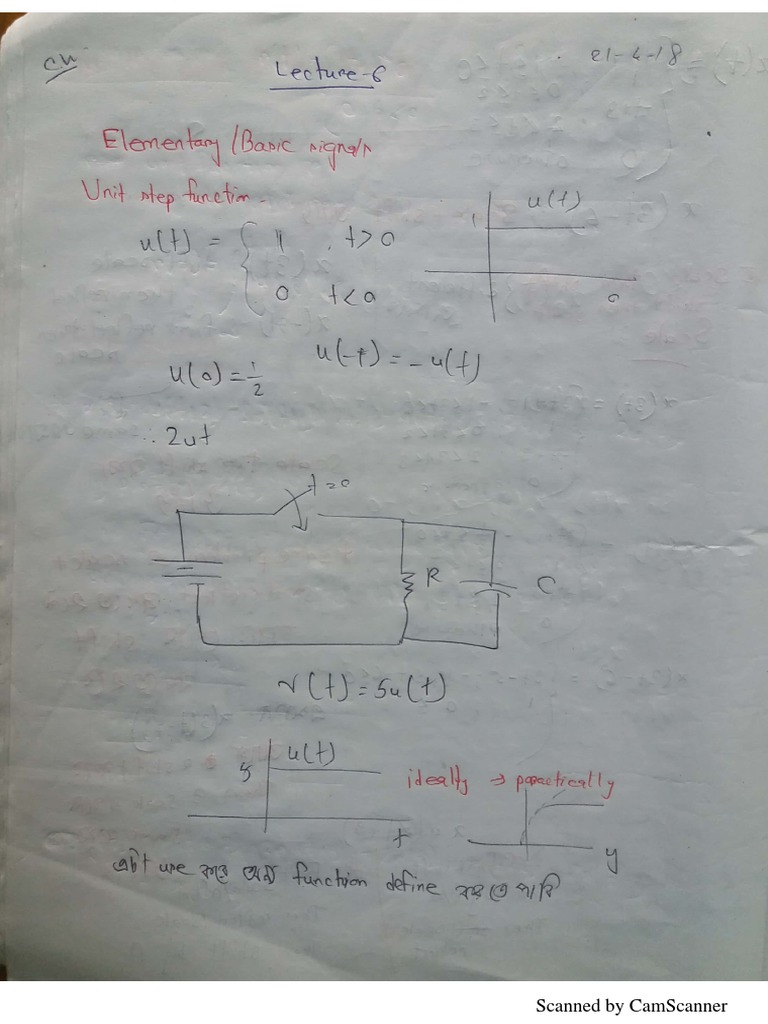 CW
21-4-18
Lecture-6
Elementary/Basic signals
Unit step function.
u(t) = { 1 , t>0
0 t<0
u(t)
1
0
u(0) = 1/2
u(-t) = -u(t)
∴ 2ut
t=0
R
C
v(t) = 5u(t)
5
u(t)
t
ideally → practically
y
এটা use করে অন্য function define করতে পারি
Scanned by CamScanner